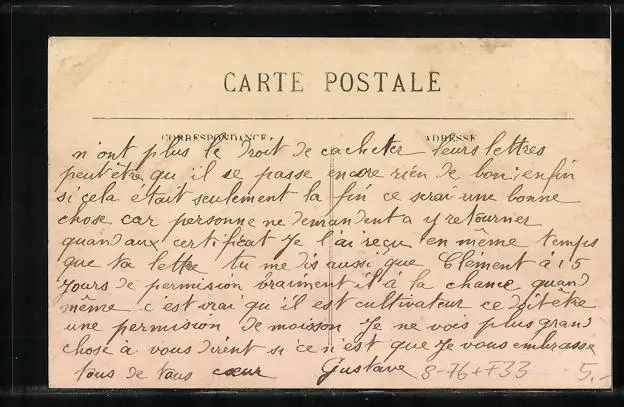 CARTE POSTALE
CORRESPONDANCE ADRESSE
n'ont plus le droit de cacheter leurs lettres
peut être qu'il se passe encore rien de bon; enfin
si cela était seulement la fin ce serai une bonne
chose car personne ne demandent a y retourner
quand aux certificat Je l'ai reçu en même temps
que ta lettre. tu me dis aussi que Clément à 15
Jours de permission braiment il à la chance quand
même c'est vrai qu'il est cultivateur ce doit être
une permission de moisson Je ne vois plus grand
chose à vous dirent si ce n'est que Je vous embrasse
tous de tous cœur Gustave 8-76+F33 5.-